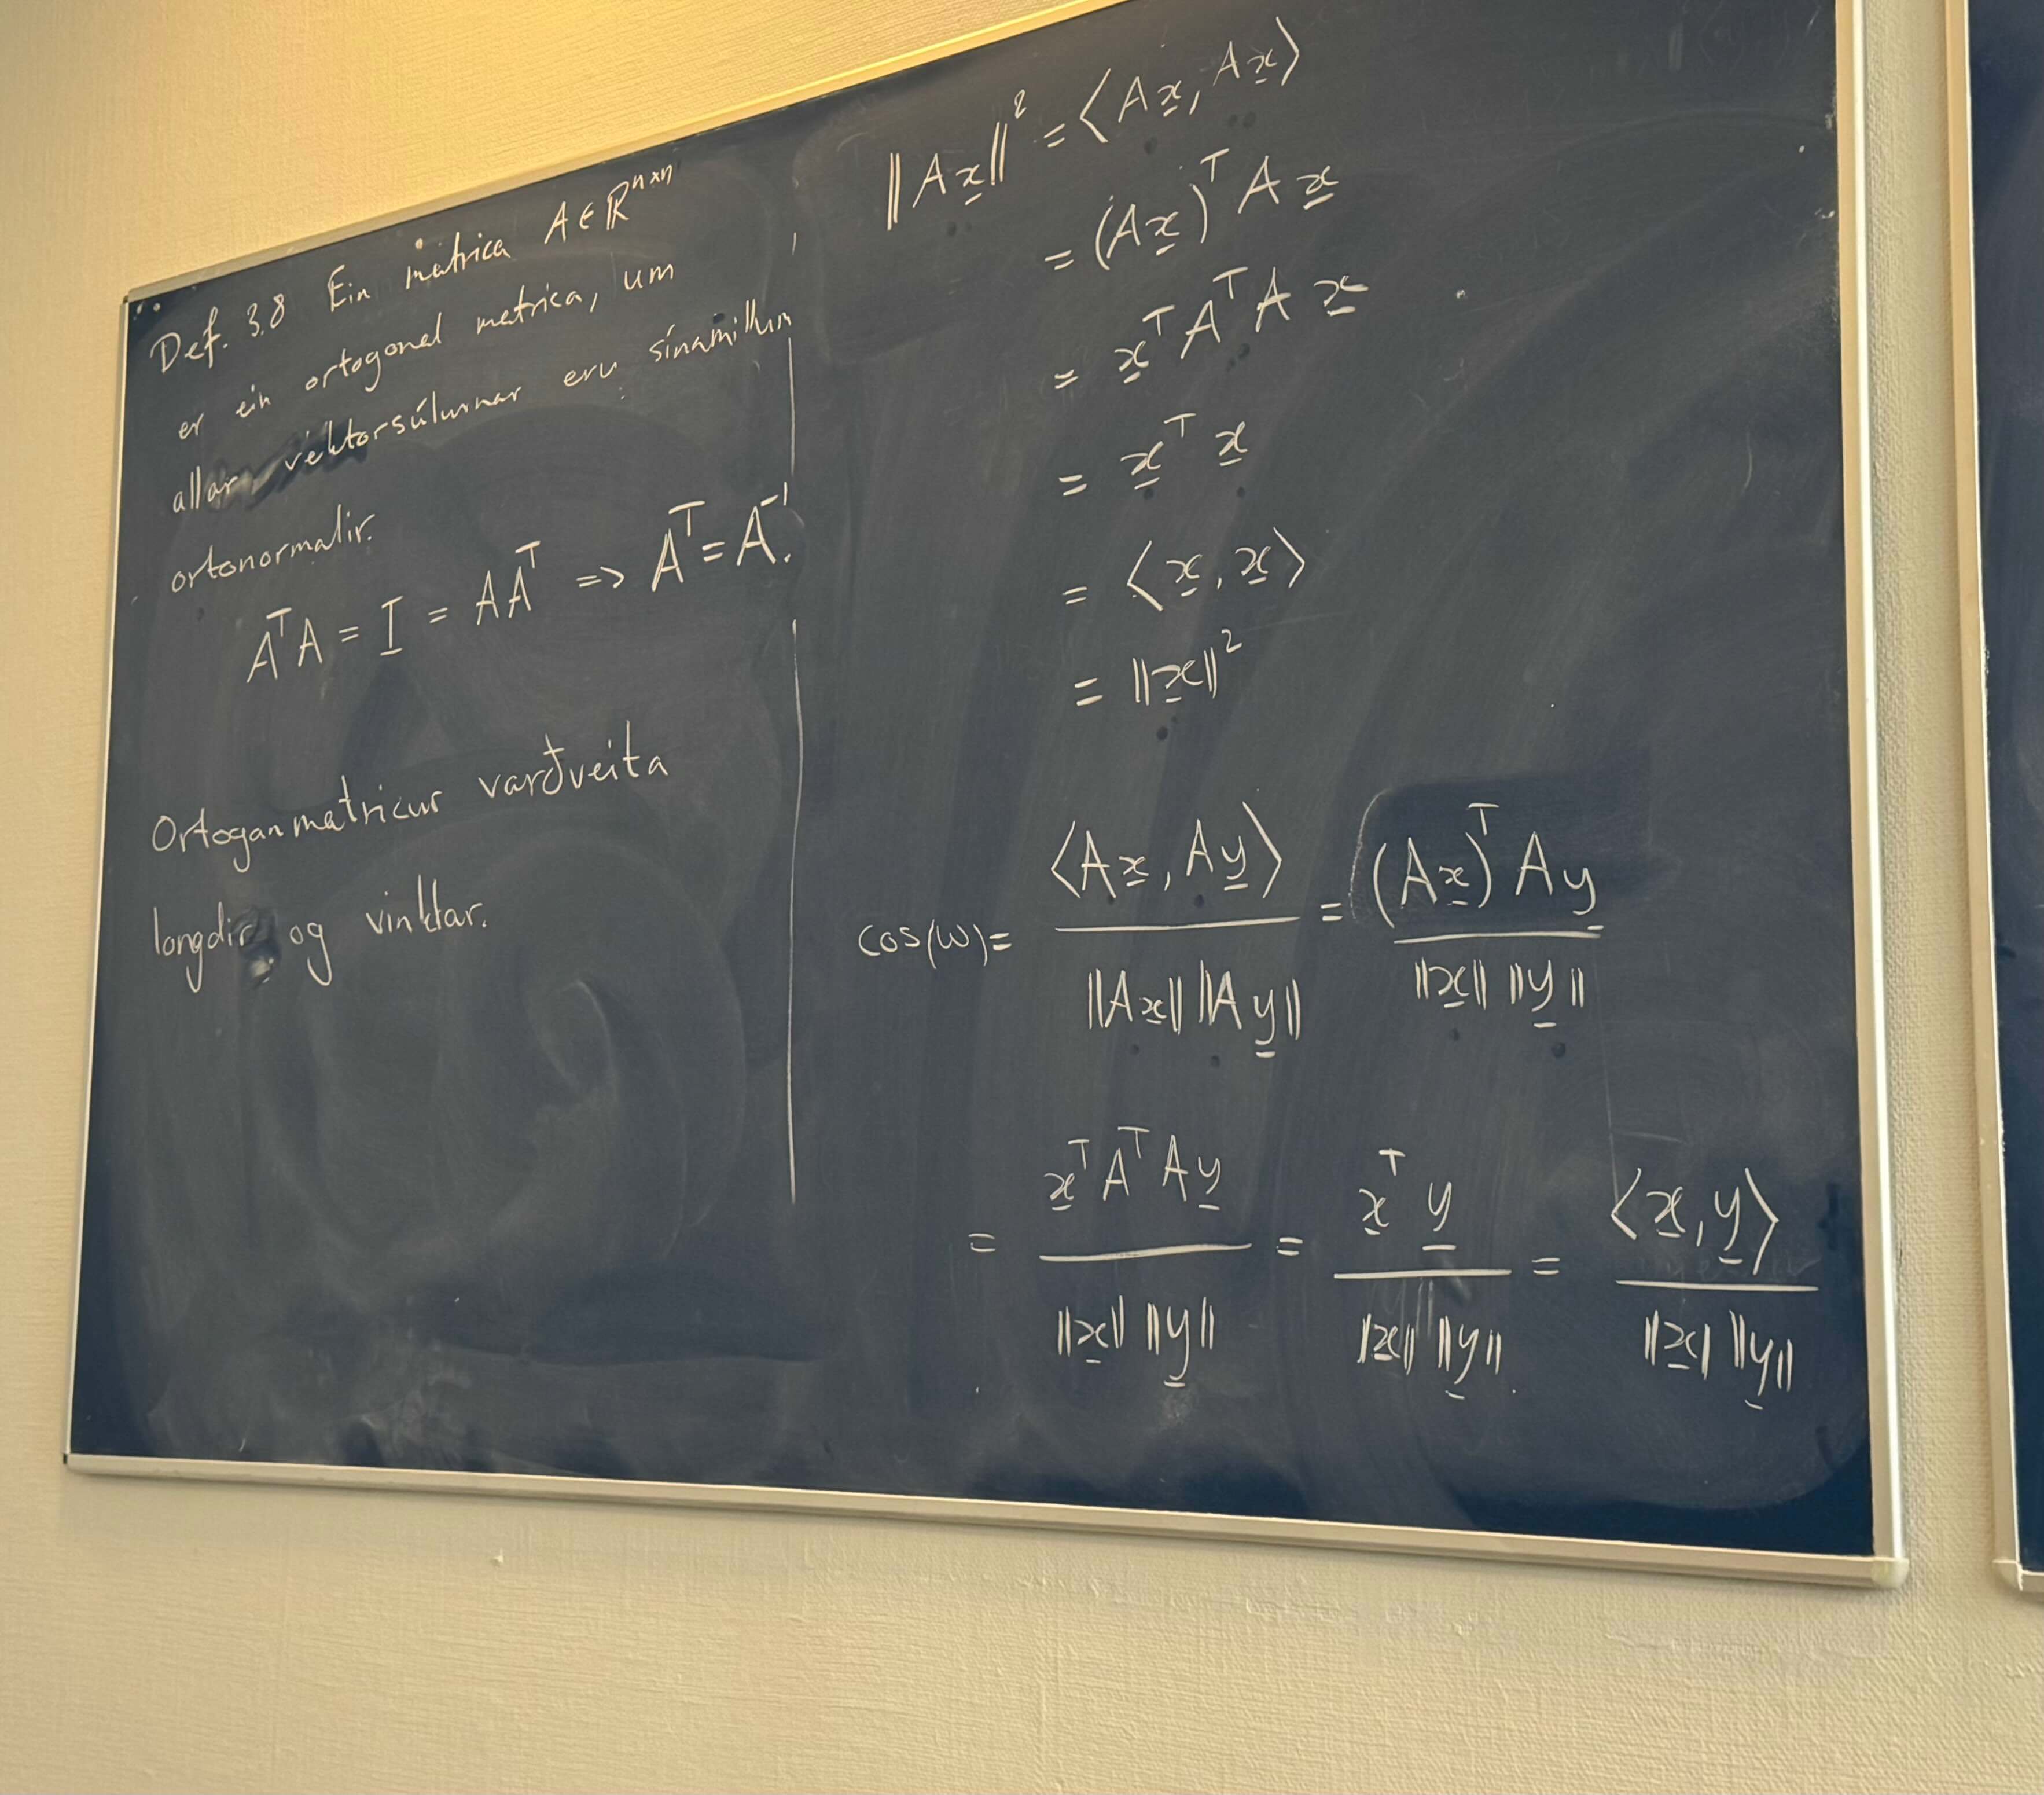 Def. 3.8 Ein matrica A ∈ ℝⁿˣⁿ
er ein ortogonal matrica, um
allar vektorsúlurnar eru sínamillum
ortonormalir.
AᵀA = I = AAᵀ => Aᵀ = A⁻¹.
Ortoganmatricur varðveita
longdir og vinklar.
||Ax̲||² = ⟨Ax̲, Ax̲⟩
= (Ax̲)ᵀ A x̲
= x̲ᵀ Aᵀ A x̲
= x̲ᵀ x̲
= ⟨x̲, x̲⟩
= ||x̲||²
cos(ω) = ⟨Ax̲, Ay̲⟩ / ||Ax̲|| ||Ay̲|| = (Ax̲)ᵀ Ay̲ / ||x̲|| ||y̲||
= x̲ᵀ Aᵀ A y̲ / ||x̲|| ||y̲|| = x̲ᵀ y̲ / ||x̲|| ||y̲|| = ⟨x̲, y̲⟩ / ||x̲|| ||y̲||